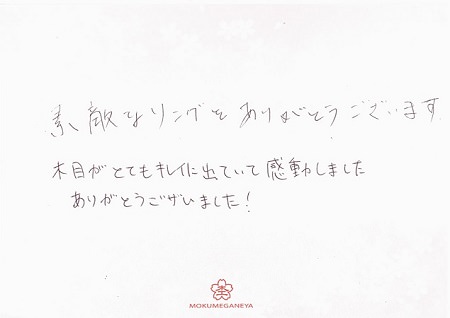 素敵なリングをありがとうございます
木目がとてもキレイに出ていて感動しました
ありがとうございました!
MOKUMEGANEYA